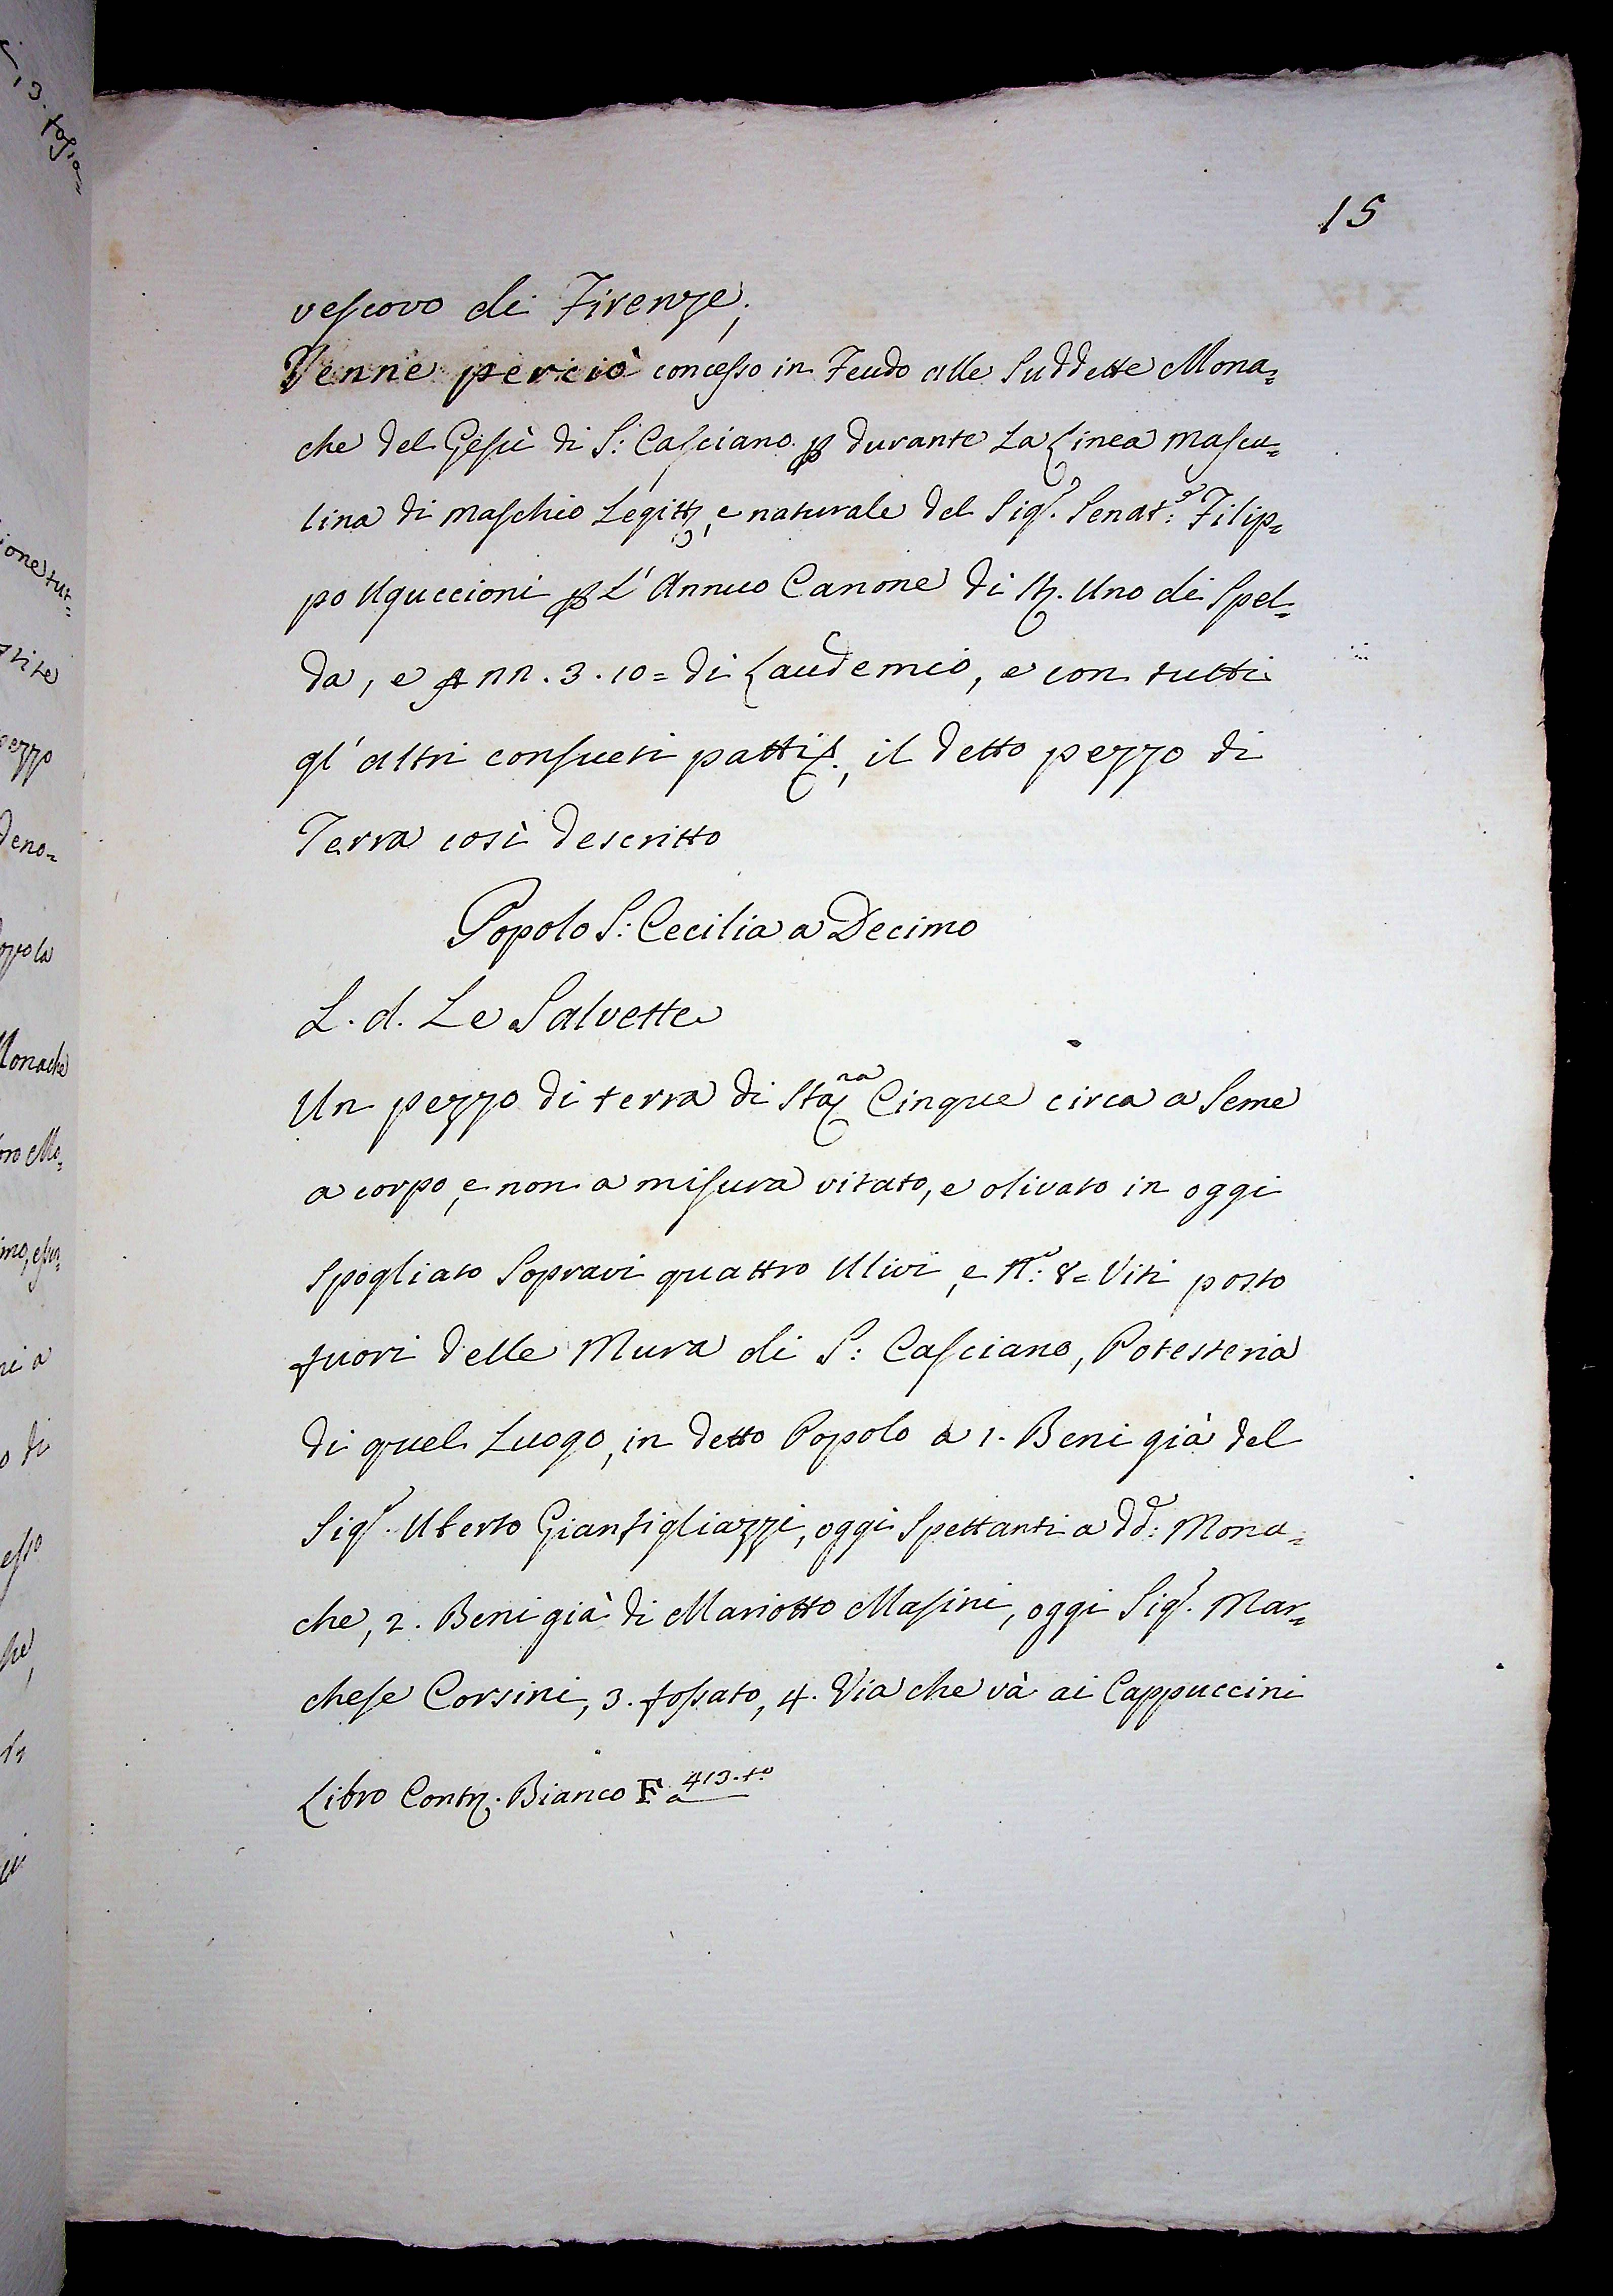 15
vescovo di Firenze;
Venne perciò concesso in Feudo alle Suddette Mona=
che del Gesù di S: Casciano p durante La Linea mascu=
lina di maschio Legitt, e naturale del Sigr. Senat:e Filip=
po Uguccioni p L' Annuo Canone di St. Uno di Spel=
da, e p nn. 3. 10= di Laudemio, e con tutti
gl' altri consueti patti, il detto pezzo di
Terra così descritto
Popolo S: Cecilia a Decimo
L. d. Le Salvette
Un pezzo di terra di Stana Cinque circa a Seme
a corpo, e non a misura vitato, e olivato in oggi
Spogliato Sopravi quattro Ulivi, e N:o 8= Viti posto
fuori delle Mura di S: Casciano, Potesteria
di quel Luogo, in detto Popolo a 1. Beni già del
Sigr. Uberto Gianfigliazzi, oggi Spettanti a dd:e Mona=
che, 2. Beni già di Mariotto Masini, oggi Sigr. Mar=
chese Corsini, 3. fossato, 4. Via che và ai Cappuccini
Libro Contr. Bianco F a 413. to
13.
pezzo
deno=
Monache